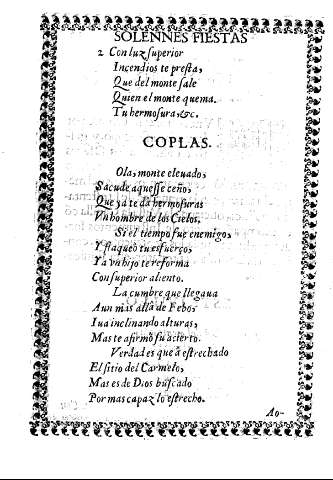 SOLENNES FIESTAS
2 Con luz superior
Incendios te presta,
Que del monte sale
Quien el monte quema.
Tu hermosura, &c.
COPLAS.
Ola, monte eleuado,
Sacude aquesse ceño,
Que ya te dà hermosuras
Vn hombre de los Cielos.
Si el tiempo fue enemigo,
Y flaqueò tu esfuerço,
Ya vn hijo te reforma
Con superior aliento.
La cumbre que llegaua
Aun mas allà de Febo,
Iua inclinando alturas,
Mas te afirmò su acierto.
Verdad es que à estrechado
El sitio del Carmelo,
Mas es de Dios buscado
Por mas capaz lo estrecho.
Ao-